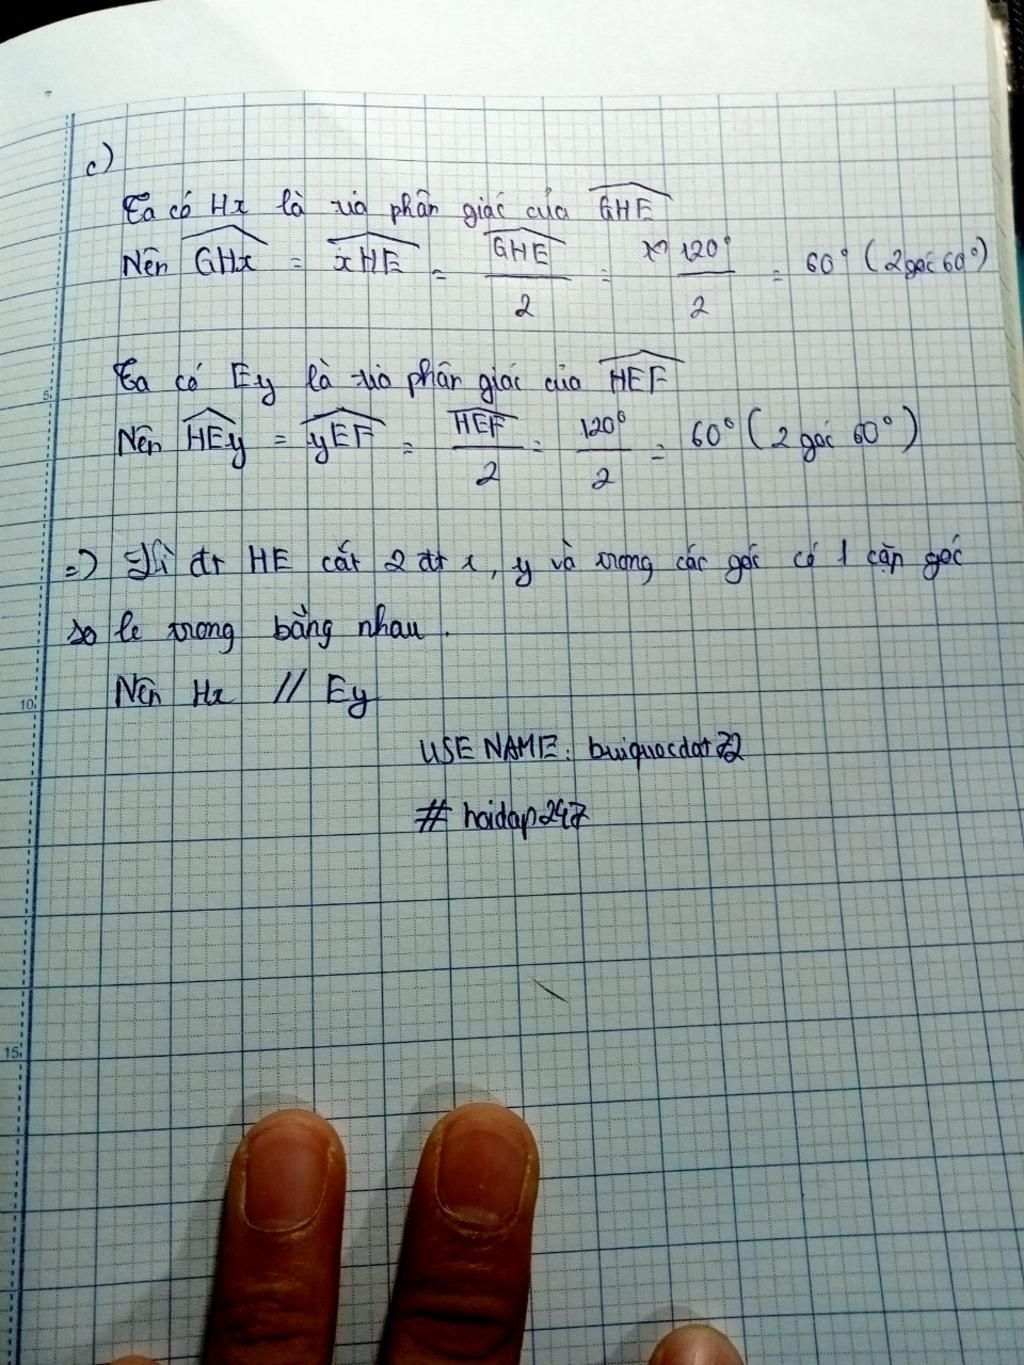 c)
Ta có Hx là tia phân giác của GHE
Nên GHx = xHE = GHE / 2 = 120° / 2 = 60° (2 góc 60°)
Ta có Ey là tia phân giác của HEF
5
Nên HEy = yEF = HEF / 2 = 120° / 2 = 60° (2 góc 60°)
=) Vì đt HE cắt 2 đt x, y và trong các góc có 1 cặp góc
so le trong bằng nhau.
10
Nên Hx // Ey
USE NAME: buiquocdat72
# hoidap247
15